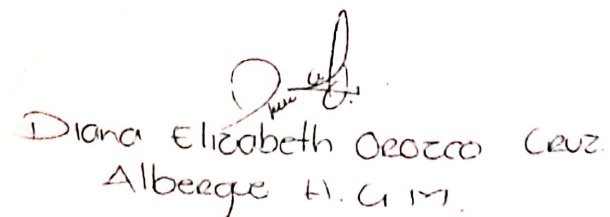 Diana Elizabeth Orozco Cruz.
Albergue H. G M.